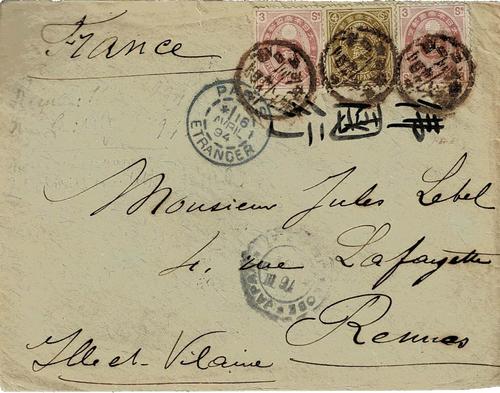 France
3 Sn 4 3 Sn
PARIS
16
AVRIL
94
ETRANGER
佛国
Monsieur Jules Lebel
4, rue Lafayette
JAPAN
16 III
Rennes
Ille et-Vilaine